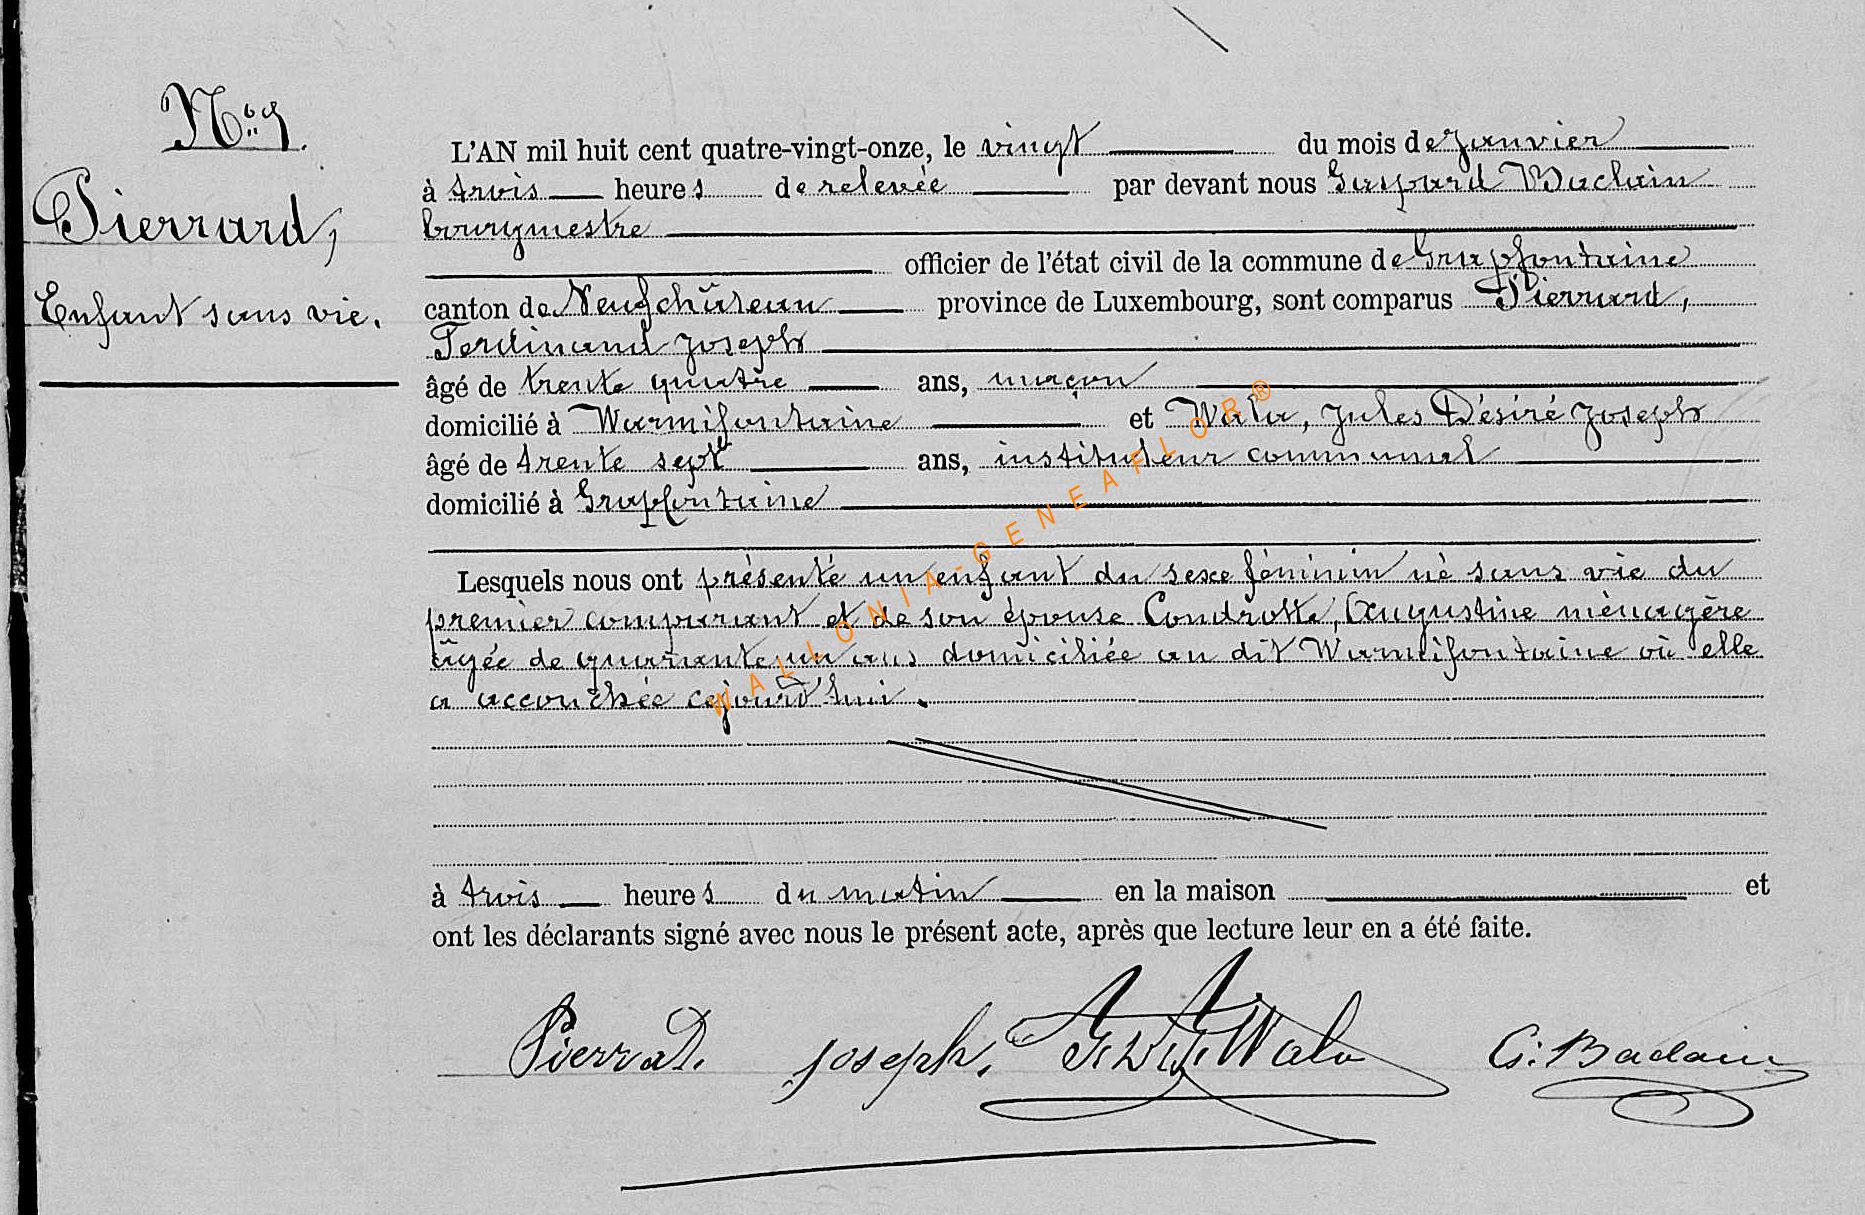 N° 9.
Pierrard,
Enfant sans vie.
L'AN mil huit cent quatre-vingt-onze, le vingt du mois de Janvier
à trois heures de relevée par devant nous Gaspard Baclain
bourgmestre
officier de l'état civil de la commune de Grapfontaine
canton de Neufchâteau province de Luxembourg, sont comparus Pierrard,
Ferdinand Joseph
âgé de trente quatre ans, maçon
domicilié à Warmifontaine et Wala, Jules Désiré Joseph
âgé de trente sept ans, instituteur communal
domicilié à Grapfontaine
Lesquels nous ont présenté un enfant du sexe féminin né sans vie du
premier comparant et de son épouse Condrotte, Augustine ménagère
âgée de quarante un ans domiciliée au dit Warmifontaine où elle
a accouchée cejourd'hui.
à trois heures du matin en la maison et
ont les déclarants signé avec nous le présent acte, après que lecture leur en a été faite.
Pierrard. Joseph. Wala G. Baclain
WALLONIA-GENEAFLOR®